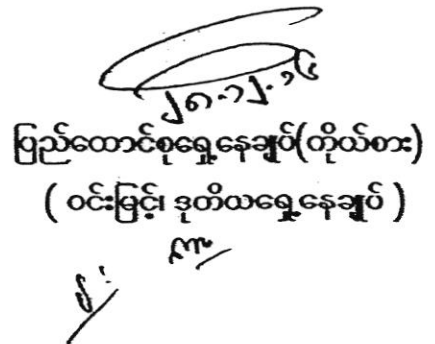 ၂၈.၁၂.၁၆
ပြည်ထောင်စုရှေ့နေချုပ်(ကိုယ်စား)
( ဝင်းမြင့်၊ ဒုတိယရှေ့နေချုပ် )